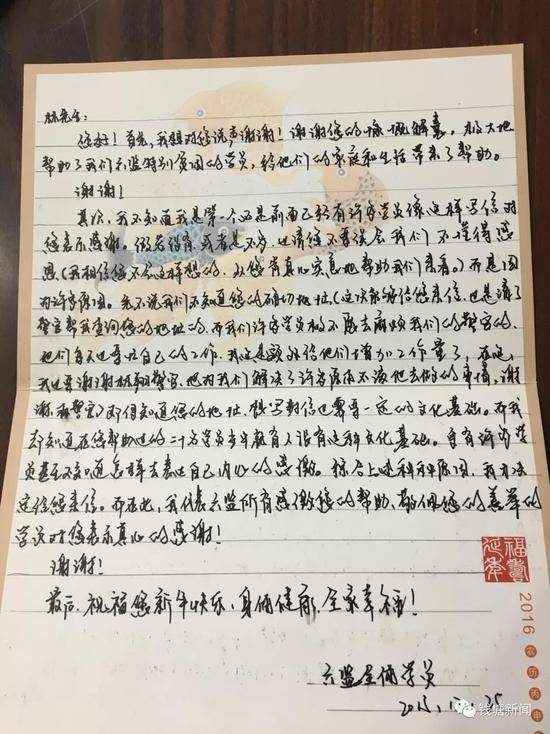 林先生：
您好！首先，我想对您说声谢谢！谢谢您的慷慨解囊，极大地
帮助了我们六监特别贫困的学员，给他们的家庭和生活带来了帮助。
谢谢！
其次，我不知道我是第一个还是前面已经有许多学员像这样写信对
您表示感谢。倘若没有，或者是不多，也请您不要误会我们不懂得感
恩（我相信您不会这样想的，从您肯真心实意地帮助我们来看。）而是因
为许多原因。先不说我们不知道您的确切地址，（这次能够给您来信，也是请了
警官帮我查询您的地址的，而我们许多学员根本不愿去麻烦我们的警官的，
他们有不过尽自己的工作，我这是额外给他们增加工作量了，在此，
我还要谢谢林翔警官，他为我们解决了许多原本不该他去做的事情，谢
谢林警官）即得知道您的地址，想写封信也需要一定的文化基础。而我
却知道在您帮助过的二十多学员当中教有人没有这种文化基础。更有许多学
员甚至不知道怎样去表达自己内心的感谢。综合上述种种原因，我才决
定给您来信。而在此，我代表六监所有感激您的帮助、敬佩您的善举的
学员对您表示真心的感谢！
谢谢！
最后，祝福您新年快乐，身体健康，全家幸福！
六监全体学员
2015.12.25
福寿延年
2016
农历丙申
钱塘新闻